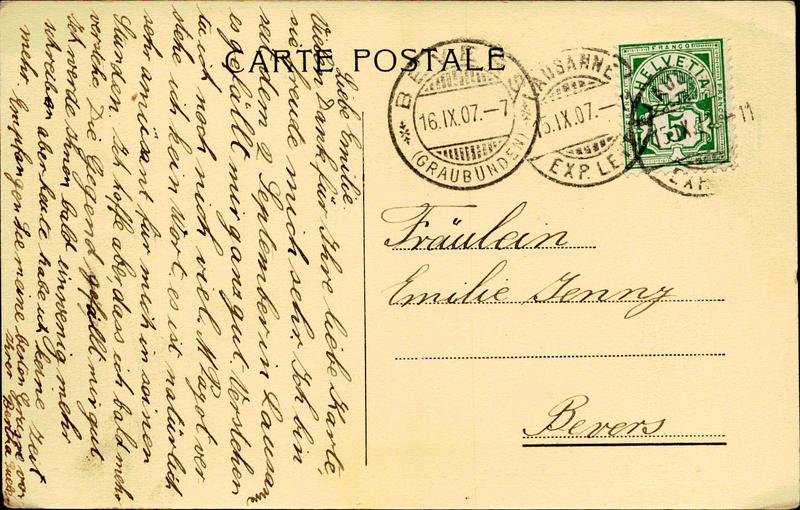 CARTE POSTALE
Liebe Emilie
Vielen Dank für Ihre liebe Karte,
freude mich sehr. Ich bin
seit dem 2 September in Lausan
es gefällt mir ganz gut. Verstehen
tu ich noch nich viel. M Pagot ver
stehe ich kein Wort. es ist natürlich
sehr amüsant für mich in seinen
Stunden. Ich hoffe abe, dass ich bald mehr
verstehe Die Gegend gefällt mir gut
Ich werde Ihnen bald ein wenig mehr
schreiben aber heute habe ich keine Zeit
mehr. Empfangen Sie meine besten Grüsse von
Ihrer Bertha
BEVERS
16.IX.07.-7
(GRAUBÜNDEN)
LAUSANNE
15.IX.07.-
EXP. LE
FRANCO
HELVETIA
5
11
EXP
Fräulein
Emilie Jenny
Bevers